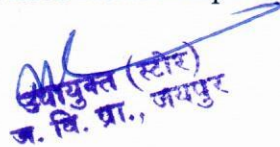 उपायुक्त (स्टोर)
ज. वि. प्रा., जयपुर